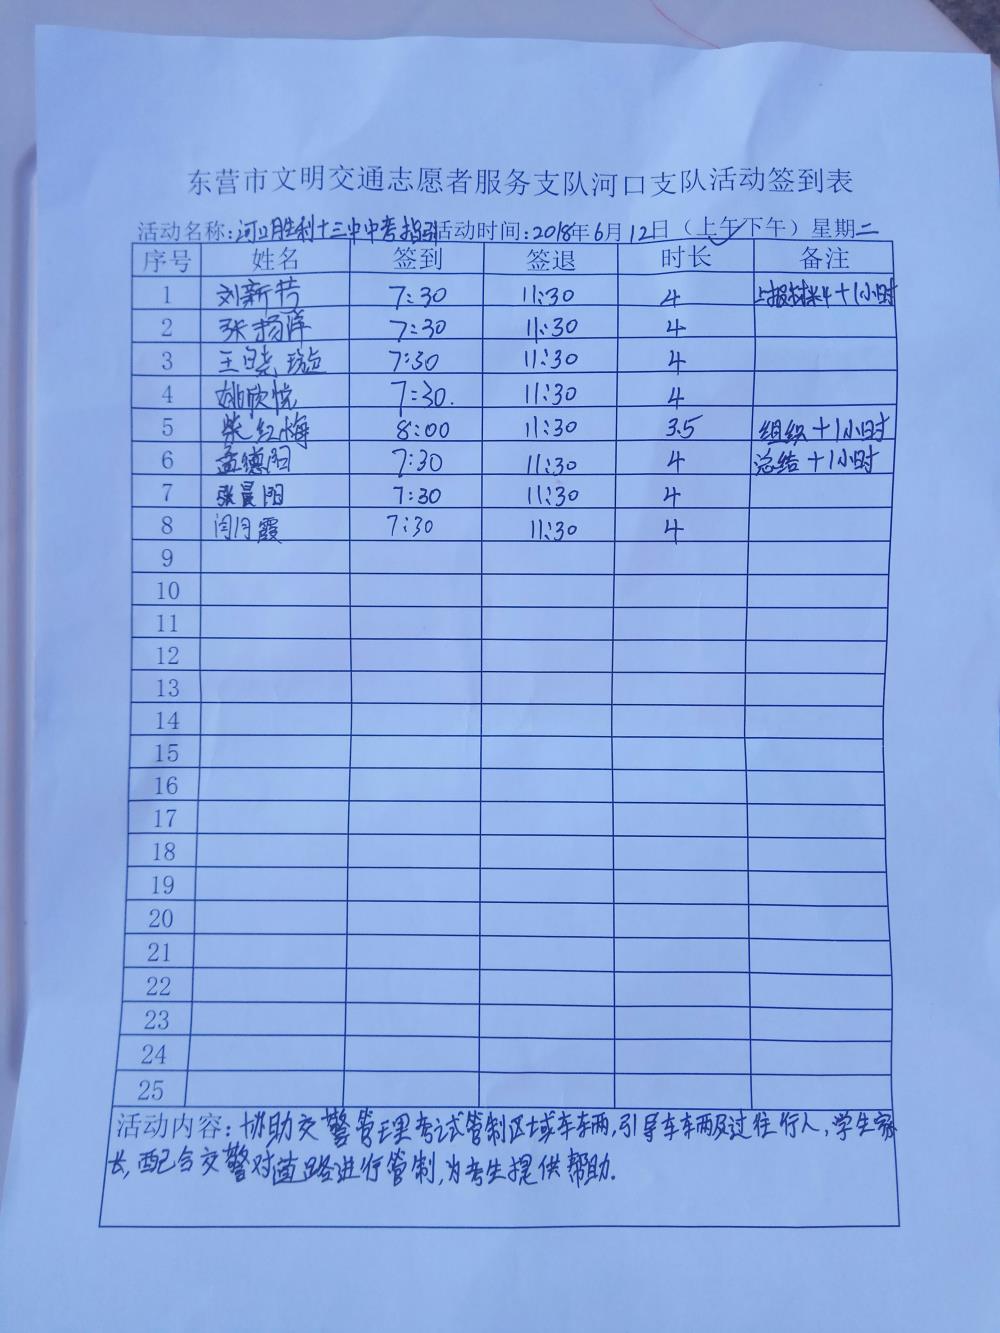 东营市文明交通志愿者服务支队河口支队活动签到表
活动名称:河口胜利十三中中考指引活动时间:2018年6月12日（上午下午）星期二
序号 姓名 签到 签退 时长 备注
1 刘新 7:30 11:30 4 上报材料+1小时
2 张杨萍 7:30 11:30 4
3 王晓璇 7:30 11:30 4
4 姚欣悦 7:30. 11:30 4
5 柴红梅 8:00 11:30 3.5 组织+1小时
6 孟德阳 7:30 11:30 4 总结+1小时
7 张晨阳 7:30 11:30 4
8 闫月霞 7:30 11:30 4
9
10
11
12
13
14
15
16
17
18
19
20
21
22
23
24
25
活动内容:协助交警管理考试管制区域车辆,引导车辆及过往行人,学生家
长,配合交警对道路进行管制,为考生提供帮助.